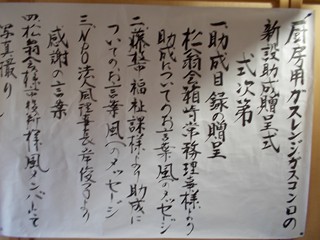 厨房用ガスレンジガスコンロの
新設助成贈呈式
式次第
一、助成目録の贈呈
松翁会 常務理事様より
助成についてのお言葉風へのメッセージ
二、藤枝市福祉課様より助成に
ついてのお言葉 風へのメッセージ
三、NPO法人風理事長 より
感謝の言葉
四、松翁会様 様風メンバーにて
写真撮り